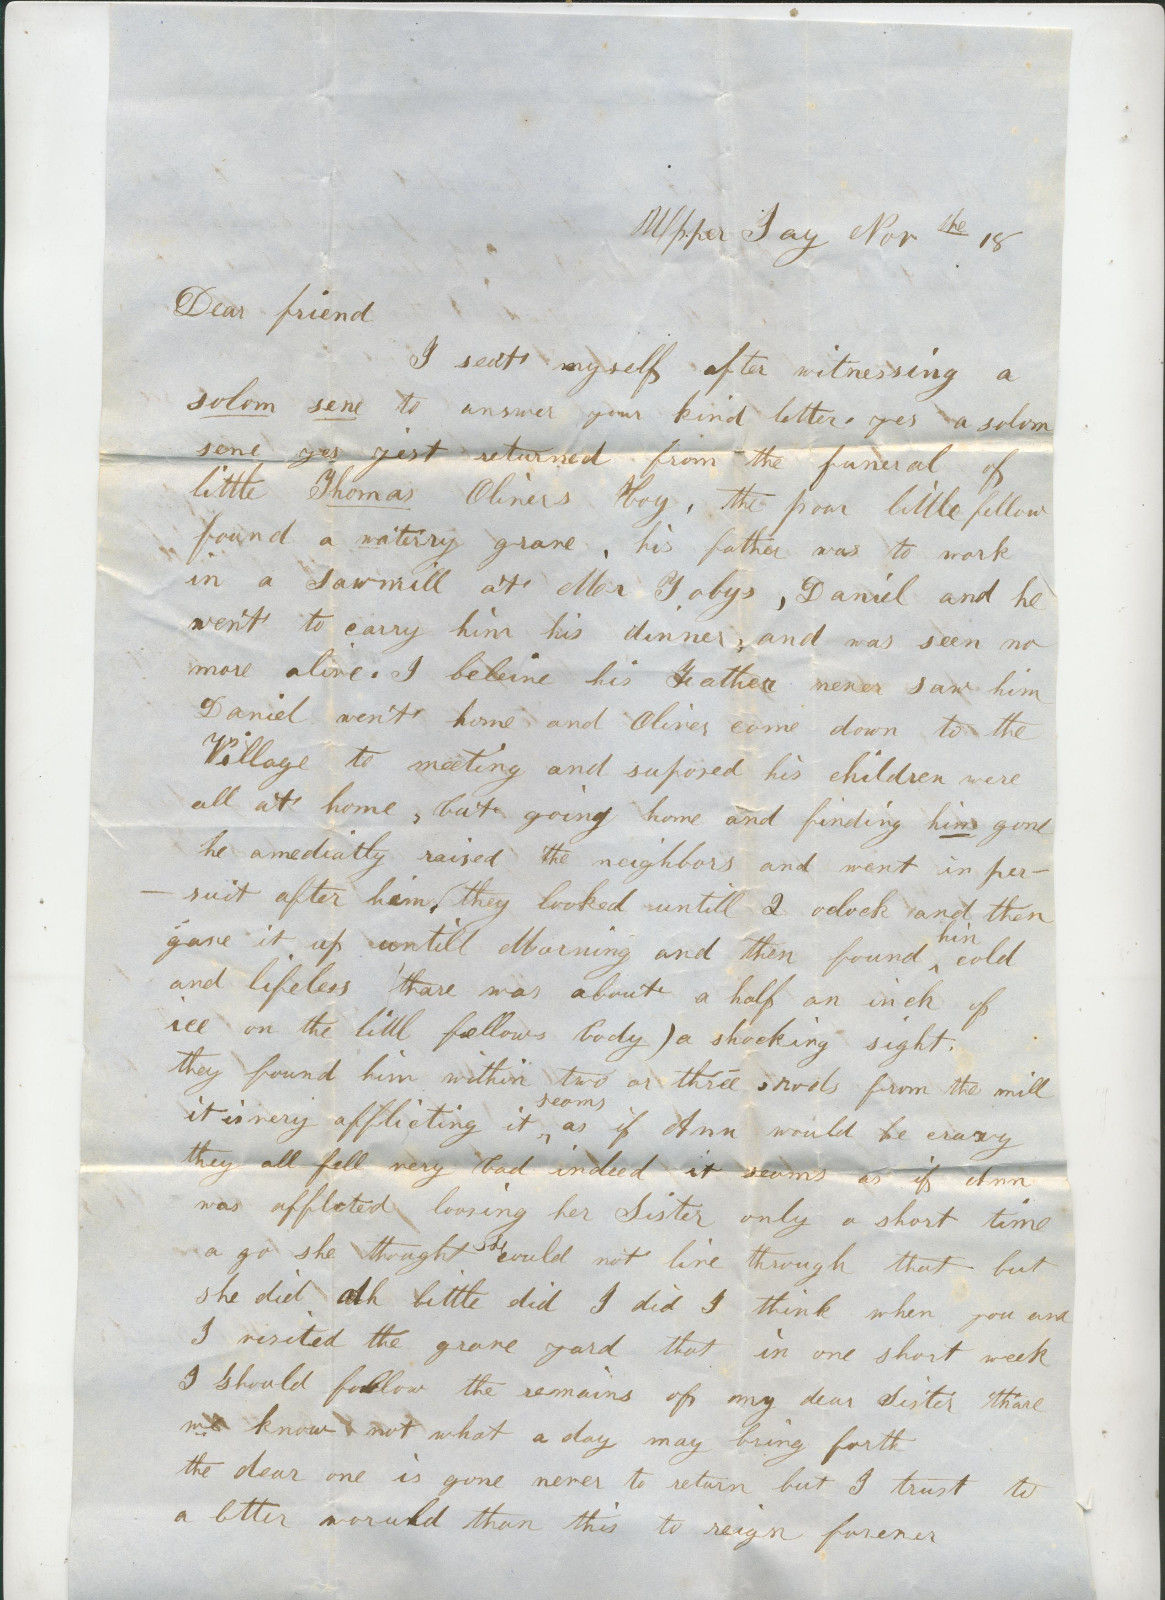 Upper Jay Nov the 18
Dear friend
I seat myself after witnessing a
solom sene to answer your kind letter. yes a solom
sene yes jist returned from the funeral of
little Thomas Olivers Boy, the poor little fellow
found a waterry grave, his father was to work
in a sawmill at Mr Tobys, Daniel and he
went to carry him his dinner, and was seen no
more alive. I beleive his Father never saw him
Daniel went home and Oliver come down to the
Village to meeting and suposed his children were
all at home, but going home and finding him gone
he amediatly raised the neighbors and went in per-
- suit after him, (they looked untill 2 oclock and then
gave it up untill Morning and then found ^ him cold
and lifeless thare was about a half an inch of
ice on the littl fellows body) a shocking sight.
they found him within two or three rods from the mill
it is very afflicting it ^ seams as if Ann would be crazy
they all fell very bad indeed it seams as if Ann
was afflicted loosing her Sister only a short time
a go she thought she could not live through that but
she did ah little did I did I think when you and
I visited the grave yard that in one short week
I should follow the remains of my dear Sister thare
we know not what a day may bring forth
the dear one is gone never to return but I trust to
a better woruld than this to reign forever